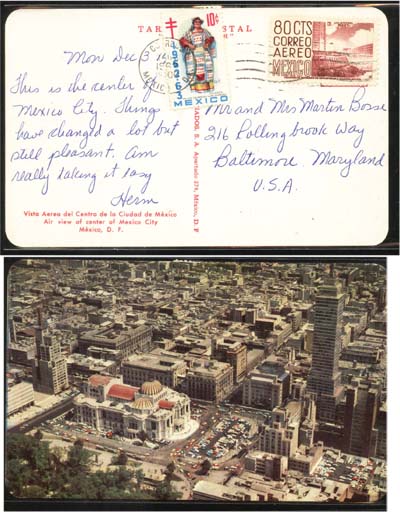 TARJETA POSTAL
Mon Dec 3
This is the center of
Mexico City. Things
have changed a lot but
still pleasant. Am
really taking it easy
Herm
10¢
1962-63
MEXICO
80 CTS
CORREO
AEREO
MEXICO
Mr and Mrs Martin
216 Collingbrook Way
Baltimore, Maryland
U.S.A.
Vista Aerea del Centro de la Ciudad de México
Air view of center of Mexico City
México, D. F.